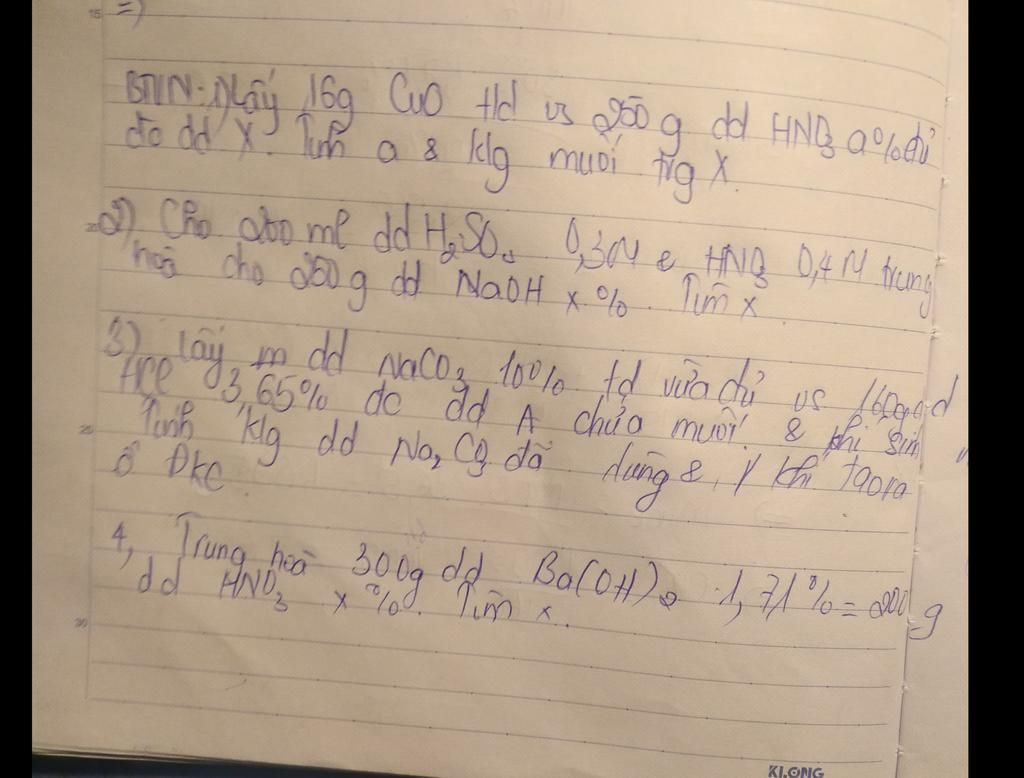 =)
BTVN: 1) Lấy 16g CuO td vs 250g dd HNO3 a% đủ
đc dd X. Tính a & klg muối trg X.
2) Cho 200 ml dd H2SO4 0,3M & HNO3 0,4M trung
hoà cho 250g dd NaOH x%. Tìm x
3) lấy m dd NaCO3 10% td vừa đủ vs 160g dd
HCl 3,65% đc dd A chứa muối & khí sinh
Tính klg dd Na2CO3 đã dùng &, V khí tạo ra
ở ĐKC
4, Trung hoà 300g dd Ba(OH)2 1,71% = 200g
dd HNO3 x%. Tìm x.
KLONG